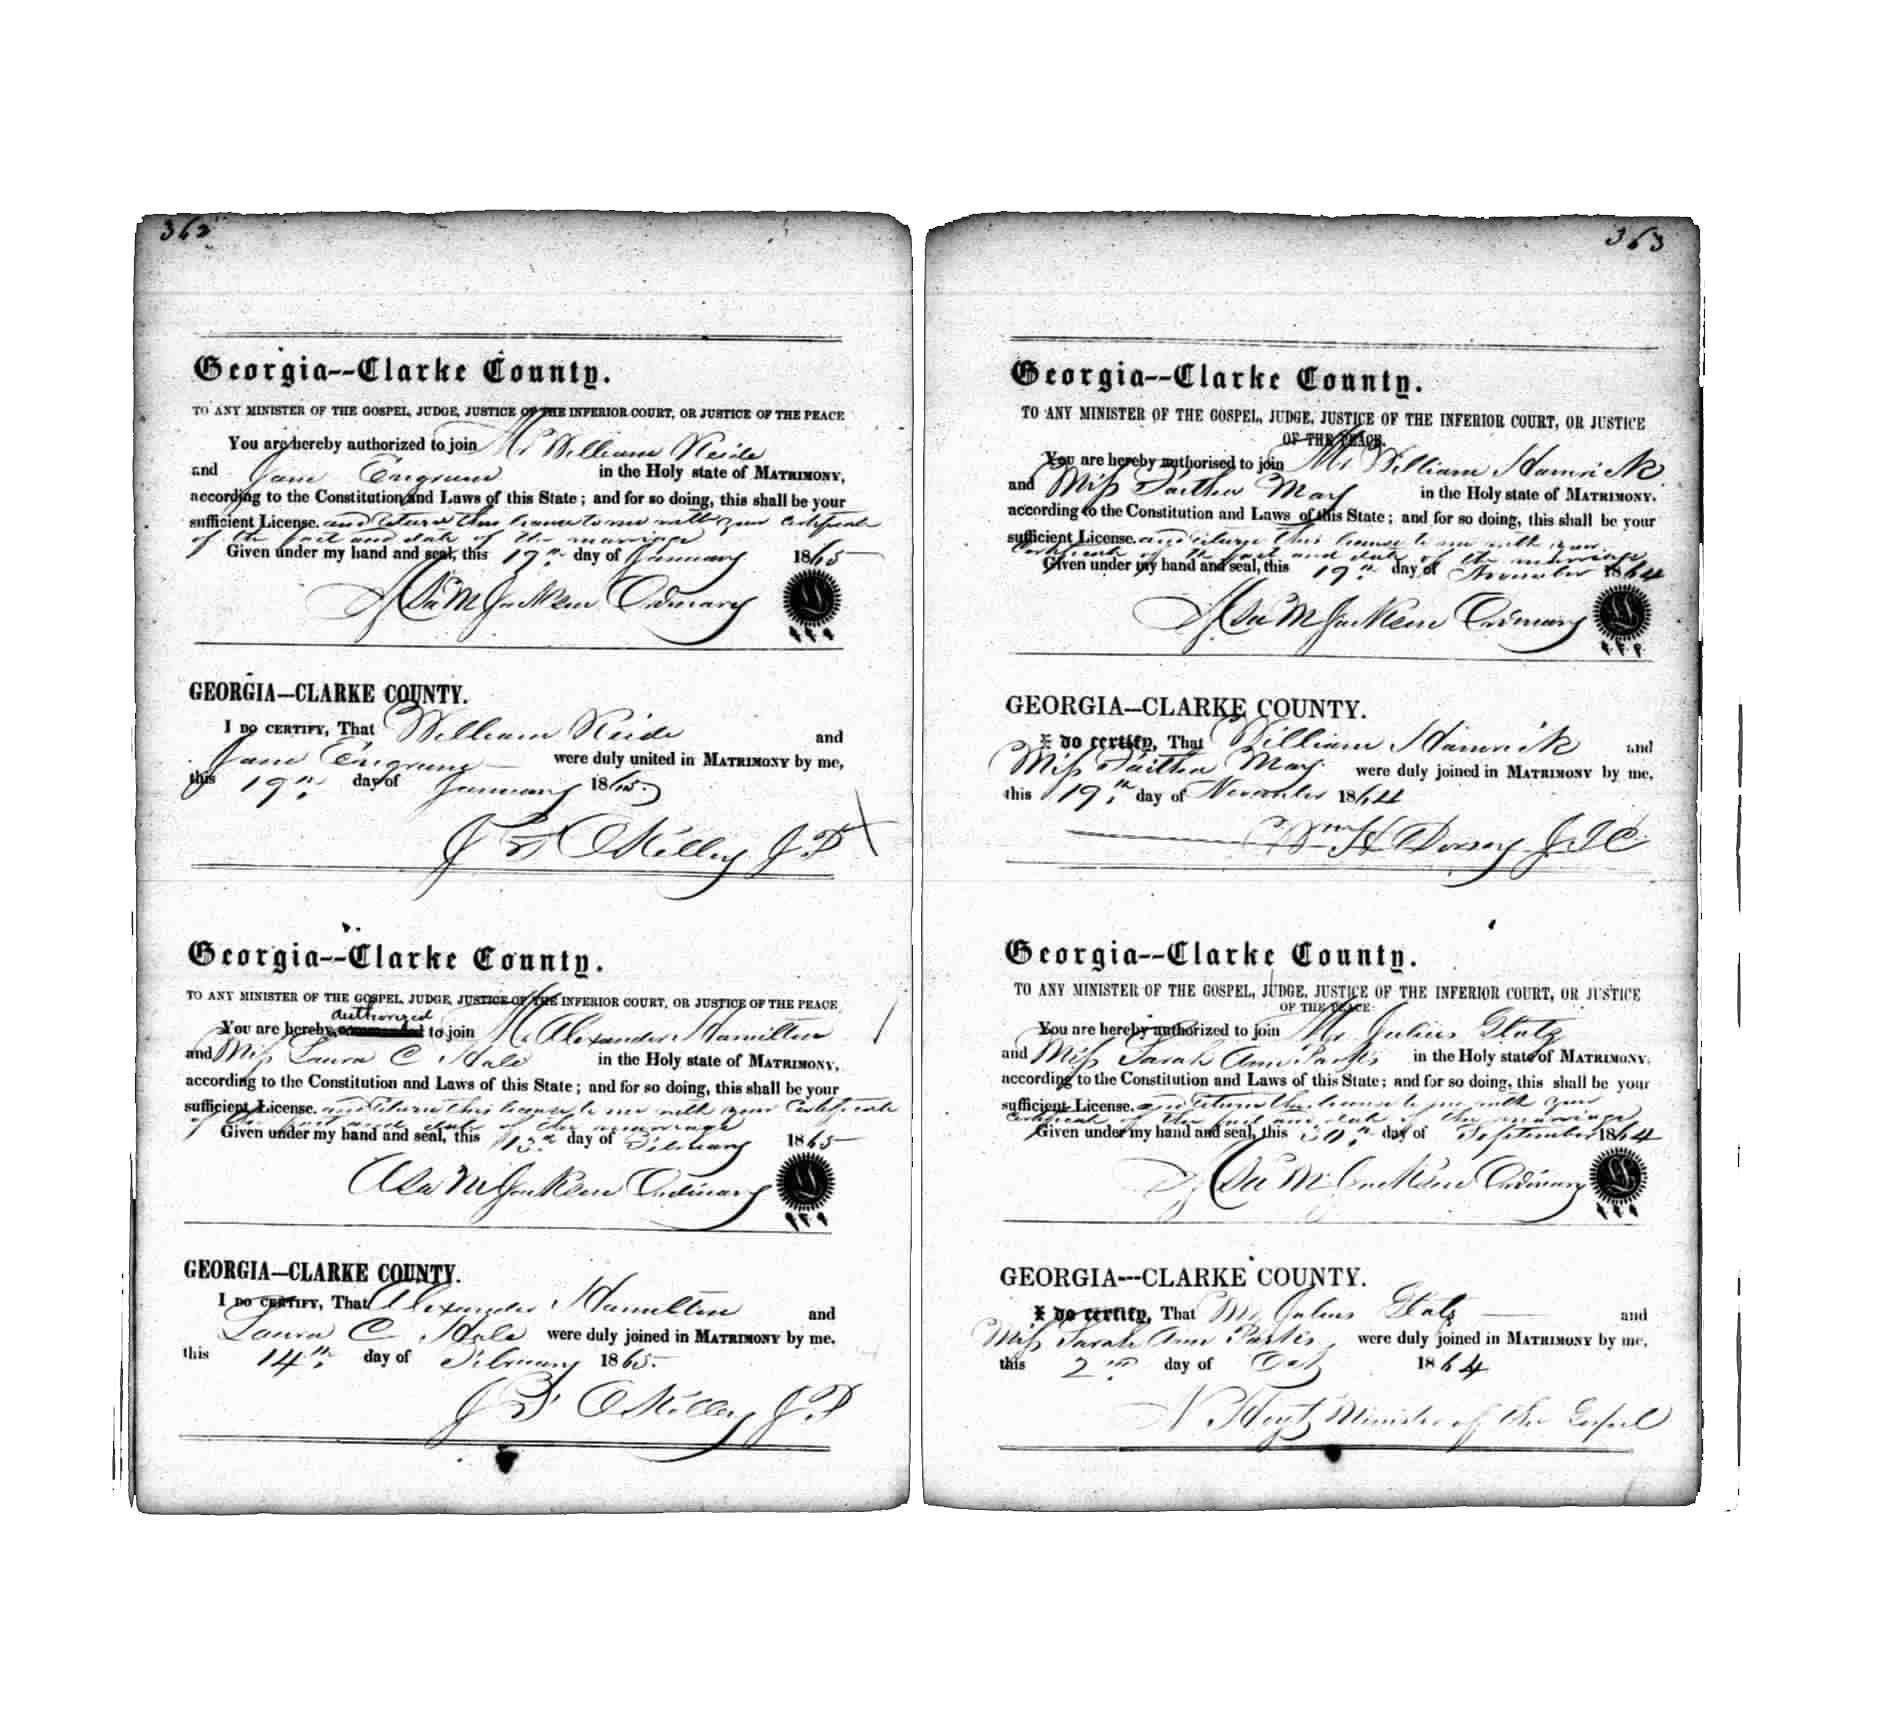 362
Georgia--Clarke County.
TO ANY MINISTER OF THE GOSPEL, JUDGE, JUSTICE OF THE INFERIOR COURT, OR JUSTICE OF THE PEACE
You are hereby authorized to join Mr William Reide
and Jane Engrum in the Holy state of MATRIMONY,
according to the Constitution and Laws of this State; and for so doing, this shall be your
sufficient License. and return this license to me with your Certificate
of the fact and date of the marriage
Given under my hand and seal, this 19th day of January 1865
Asa M Jackson Ordinary
GEORGIA—CLARKE COUNTY.
I DO CERTIFY, That William Reide and
Jane Engrum were duly united in MATRIMONY by me,
this 19th day of January 1865.
J B O'Killey J P
Georgia--Clarke County.
TO ANY MINISTER OF THE GOSPEL, JUDGE, JUSTICE OF THE INFERIOR COURT, OR JUSTICE OF THE PEACE
authorized
You are hereby to join Mr Alexander Hamilton
and Miss Laura C Hale in the Holy state of MATRIMONY,
according to the Constitution and Laws of this State; and for so doing, this shall be your
sufficient License. and return this license to me with your Certificate
of the fact and date of the marriage
Given under my hand and seal, this 13th day of February 1865
Asa M Jackson Ordinary
GEORGIA—CLARKE COUNTY.
I DO CERTIFY, That Alexander Hamilton and
Laura C Hale were duly joined in MATRIMONY by me.
this 14th day of February 1865.
J B O'Killey J P
363
Georgia--Clarke County.
TO ANY MINISTER OF THE GOSPEL, JUDGE, JUSTICE OF THE INFERIOR COURT, OR JUSTICE
OF THE PEACE.
You are hereby authorised to join Mr William Hamrick
and Miss Faitha May in the Holy state of MATRIMONY.
according to the Constitution and Laws of this State; and for so doing, this shall be your
sufficient License. and return this license to me with your
Certificate of the fact and date of the marriage
Given under my hand and seal, this 19th day of November 1864
Asa M Jackson Ordinary
GEORGIA—CLARKE COUNTY.
I do certify, That William Hamrick and
Miss Faitha May were duly joined in MATRIMONY by me,
this 19th day of November 1864
Wm H Dorsey J I C
Georgia--Clarke County.
TO ANY MINISTER OF THE GOSPEL, JUDGE, JUSTICE OF THE INFERIOR COURT, OR JUSTICE
OF THE PEACE.
You are hereby authorized to join Mr Julius Statz
and Miss Sarah Ann Parks in the Holy state of MATRIMONY.
according to the Constitution and Laws of this State; and for so doing, this shall be your
sufficient License. and return this license to me with your
Certificate of the fact and date of the marriage
Given under my hand and seal, this 30th day of September 1864
Asa M Jackson Ordinary
GEORGIA---CLARKE COUNTY.
I do certify, That Mr Julius Statz and
Miss Sarah Ann Parks were duly joined in MATRIMONY by me,
this 2nd day of Oct 1864
N Hoyt Minister of the Gospel